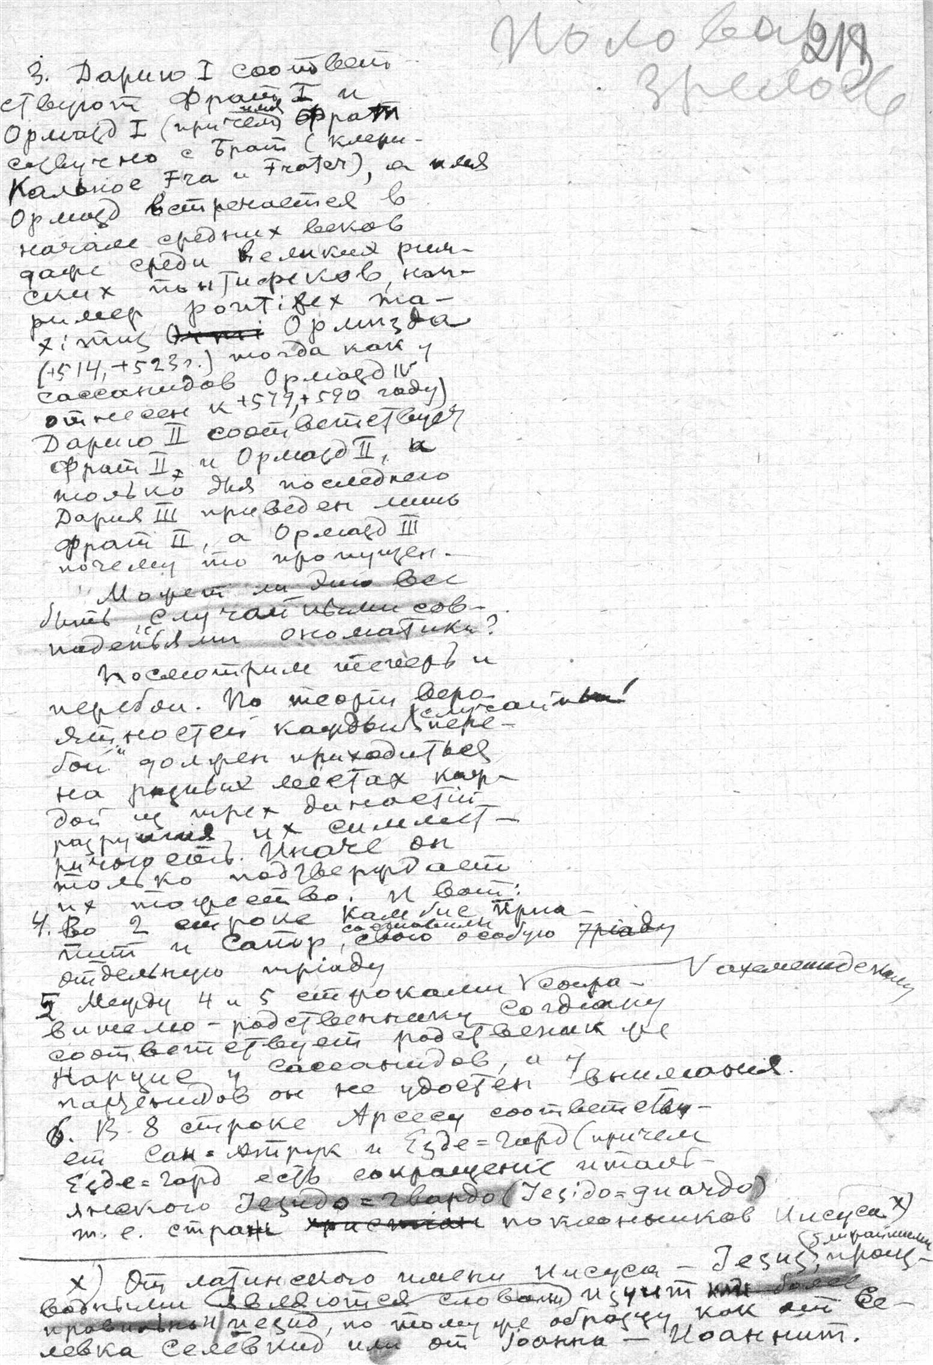 Половая 218
зрелость
3. Дарию I соответ-
ствуют Фрат I и
Ормазд I (причем имя Фрат
созвучно с Брат (клери-
кальное Fra и Frater), а имя
Ормазд встречается в
начале средних веков
даже среди великих рим-
ских понтифексов, нап-
ример pontifex ma-
ximus Ормизда
(+514,+523г.) тогда как у
сассанидов Ормазд IV
отнесен к +579,+590 году)
Дарию II соответствует
Фрат II, и Ормазд II, и
только для последнего
Дария III приведен лишь
Фрат II, а Ормазд III
почему то пропущен.
Может ли это все
быть "случайными сов-
паденьями ономатики?
Посмотрим теперь и
перебои. По теории веро-
ятностей каждый случайный
"пере-
бой" должен приходиться
на разных местах каж-
дой из трех династий
разрушая их симмет-
ричность. Иначе он
только подтверждает
их тождество. И вот:
4. Во 2 строке Камбис Приа-
пит и Сапор, составили свою особую тріаду
отдельную тріаду
5 Между 4 и 5 строками V сопра-
V ахеменидскому
вителю-родственнику Согдиану
соответствует родственник же
Нарцие у сассанидов, и у
парфенидов он не удостен внимания.
6. В 8 строке Арсесу соответству-
ет Сан=Атрук и Езде=Герд (причем
Езде=Герд есть сокращение италь-
янского Iезидо=Гвардо (Jesido=guardo)
т.е. страж христиан поклонников Иисуса х)
х) От латинского имени Иисуса – Jезus, произ-
водными являются слова изуит или более
правильный иезид, по тому же образцу как от Се-
левка Селевкид или от Iоанна – Иоаннит.